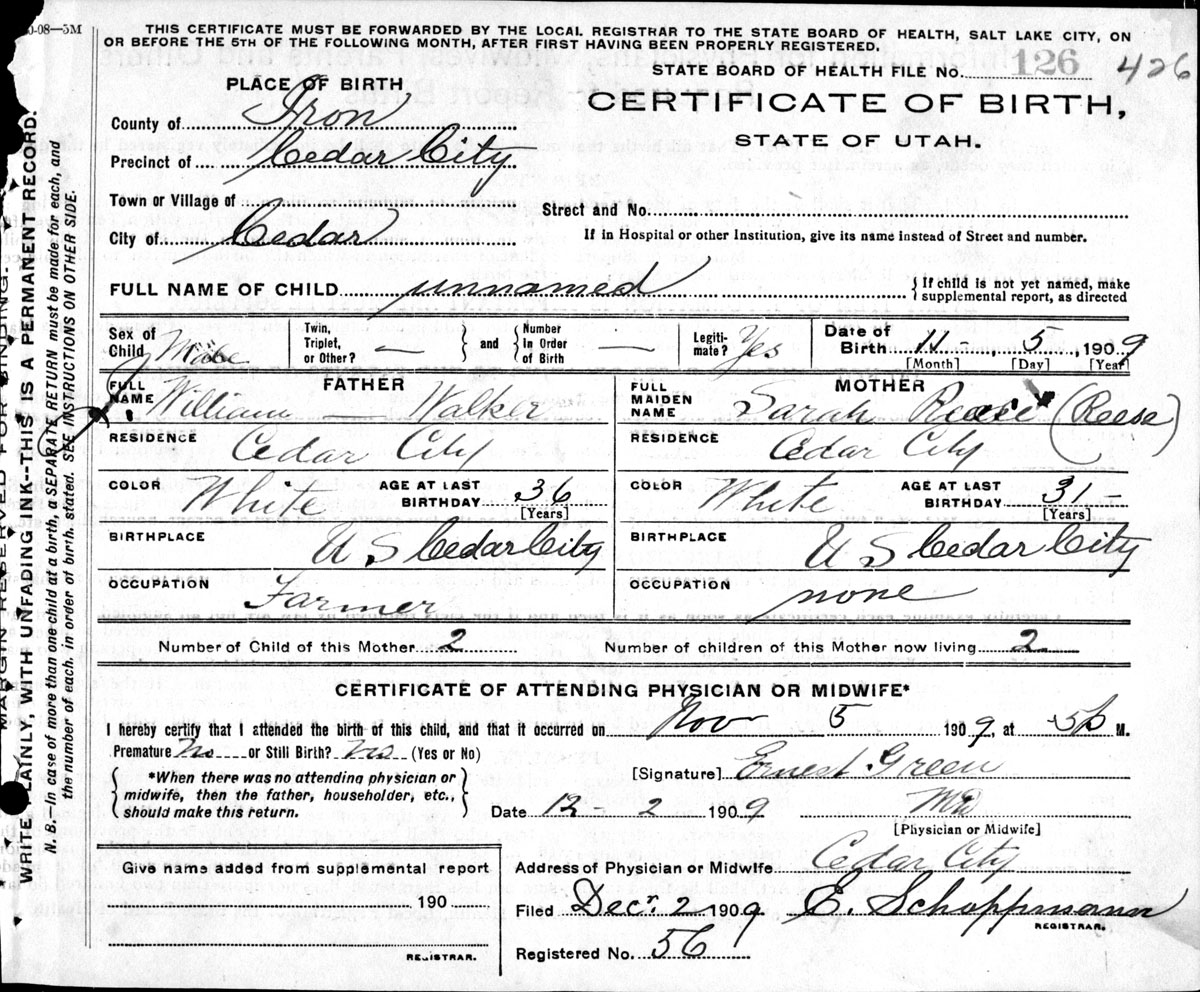 0-08—5M
THIS CERTIFICATE MUST BE FORWARDED BY THE LOCAL REGISTRAR TO THE STATE BOARD OF HEALTH, SALT LAKE CITY, ON
OR BEFORE THE 5TH OF THE FOLLOWING MONTH, AFTER FIRST HAVING BEEN PROPERLY REGISTERED.
STATE BOARD OF HEALTH FILE No. 126 426
PLACE OF BIRTH
CERTIFICATE OF BIRTH,
STATE OF UTAH.
County of Iron
Precinct of Cedar City
Town or Village of
Street and No.
City of Cedar
If in Hospital or other Institution, give its name instead of Street and number.
FULL NAME OF CHILD unnamed { If child is not yet named, make
supplemental report, as directed
Sex of Child Male
Twin, Triplet, or Other? — } and { Number In Order of Birth —
Legiti- mate? Yes
Date of Birth 11 - , 5 , 1909
[Month] [Day] [Year]
FATHER
FULL NAME William — Walker
RESIDENCE
Cedar City
COLOR White AGE AT LAST BIRTHDAY 36
[Years]
BIRTHPLACE
U S Cedar City
OCCUPATION
Farmer
MOTHER
FULL MAIDEN NAME Sarah (Reese)
RESIDENCE
Cedar City
COLOR White AGE AT LAST BIRTHDAY 31 —
[Years]
BIRTHPLACE
U S Cedar City
OCCUPATION
none
Number of Child of this Mother 2 Number of children of this Mother now living 2
CERTIFICATE OF ATTENDING PHYSICIAN OR MIDWIFE*
I hereby certify that I attended the birth of this child, and that it occurred on Nov 5 1909, at 5 P M.
Premature No or Still Birth? No (Yes or No)
{ *When there was no attending physician or
midwife, then the father, householder, etc.,
should make this return. }
[Signature] Ernest Green
Date 12 - 2 1909 MD
[Physician or Midwife]
Give name added from supplemental report
190
REGISTRAR.
Address of Physician or Midwife Cedar City
Filed Decr. 2 1909 E. Schoppmann
REGISTRAR.
Registered No. 56
MARGIN RESERVED FOR BINDING.
WRITE PLAINLY, WITH UNFADING INK—THIS IS A PERMANENT RECORD.
N. B.—In case of more than one child at a birth, a SEPARATE RETURN must be made for each, and
the number of each, in order of birth, stated. SEE INSTRUCTIONS ON OTHER SIDE.